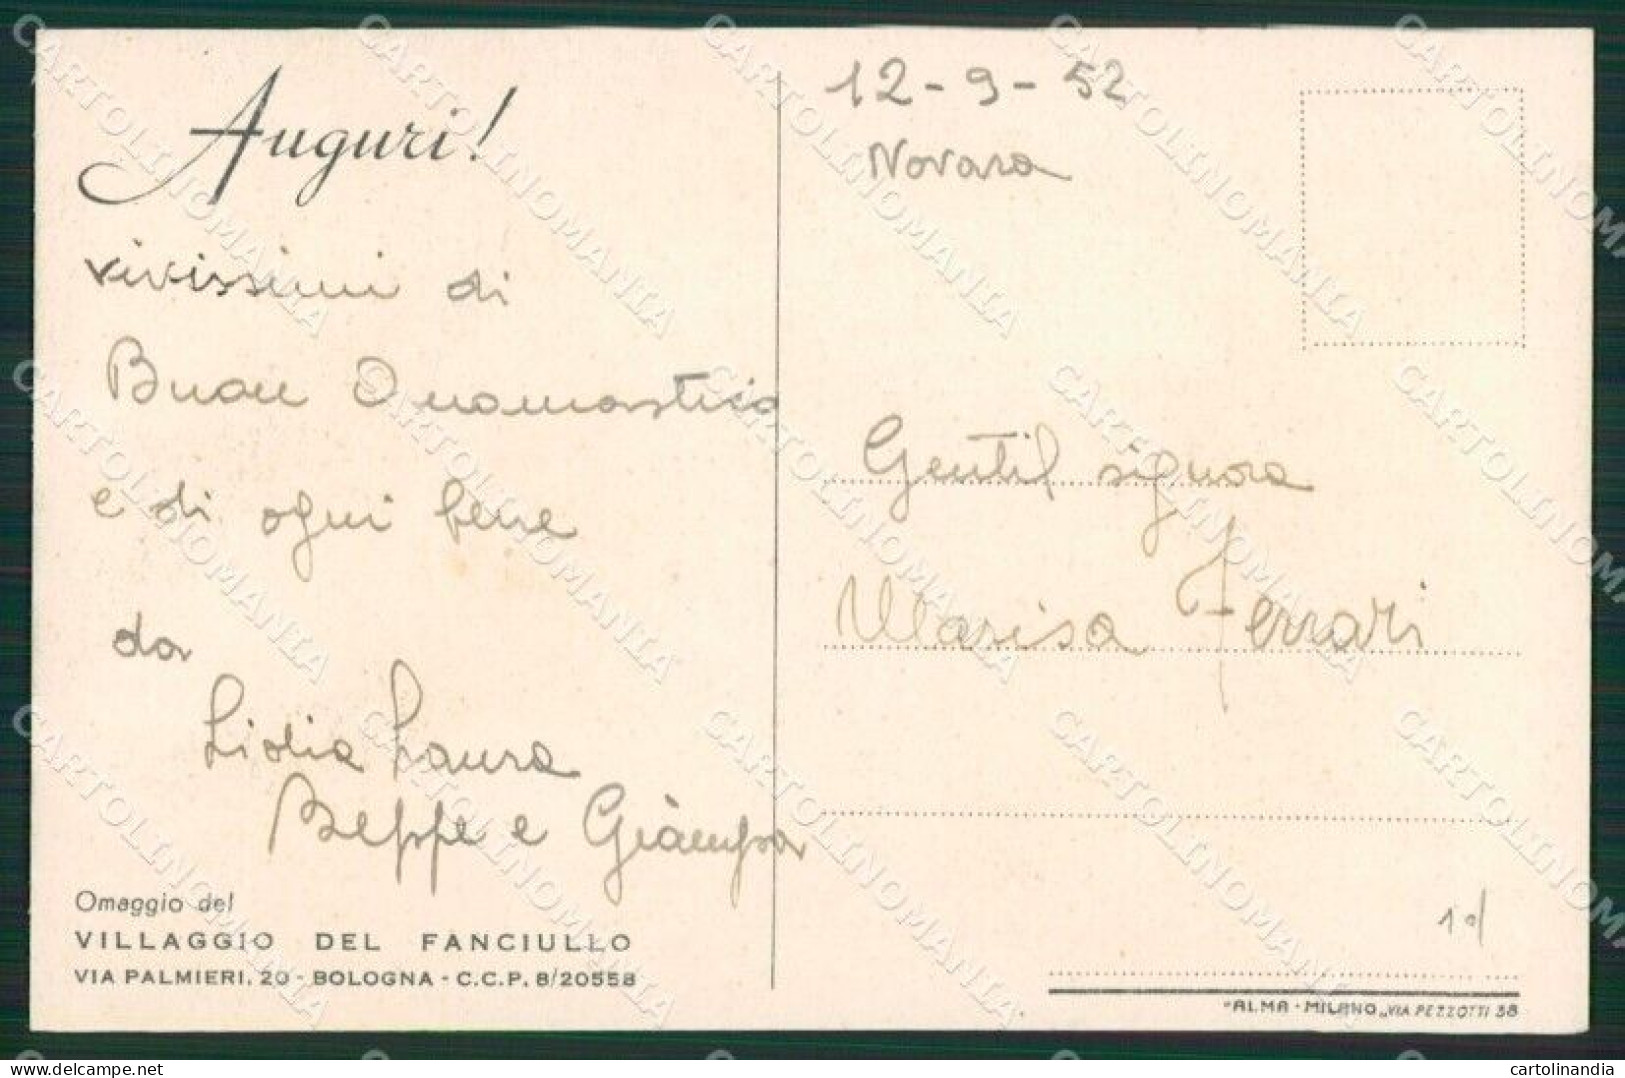 Auguri!
vivissimi di
Buon Onomastico
e di ogni bene
da
Lidia Laura
Beppe e Giampa
Omaggio del
VILLAGGIO DEL FANCIULLO
VIA PALMIERI, 20 - BOLOGNA - C.C.P. 8/20558
12-9-52
Novara
Gentil signora
Marisa Ferrari
"ALMA - MILANO„ VIA PEZZOTTI 38
CARTOLINOMANIA
delcampe.net
cartolinandia